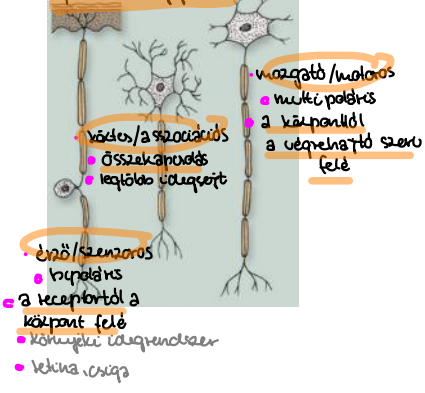 mozgató/motoros
multipoláris
a központtól
a végrehajtó szerv
felé
köztes/asszociációs
összekapcsolás
legtöbb idegsejt
érző/szenzoros
bipoláris
a receptortól a
központ felé
környéki idegrendszer
retina, csiga